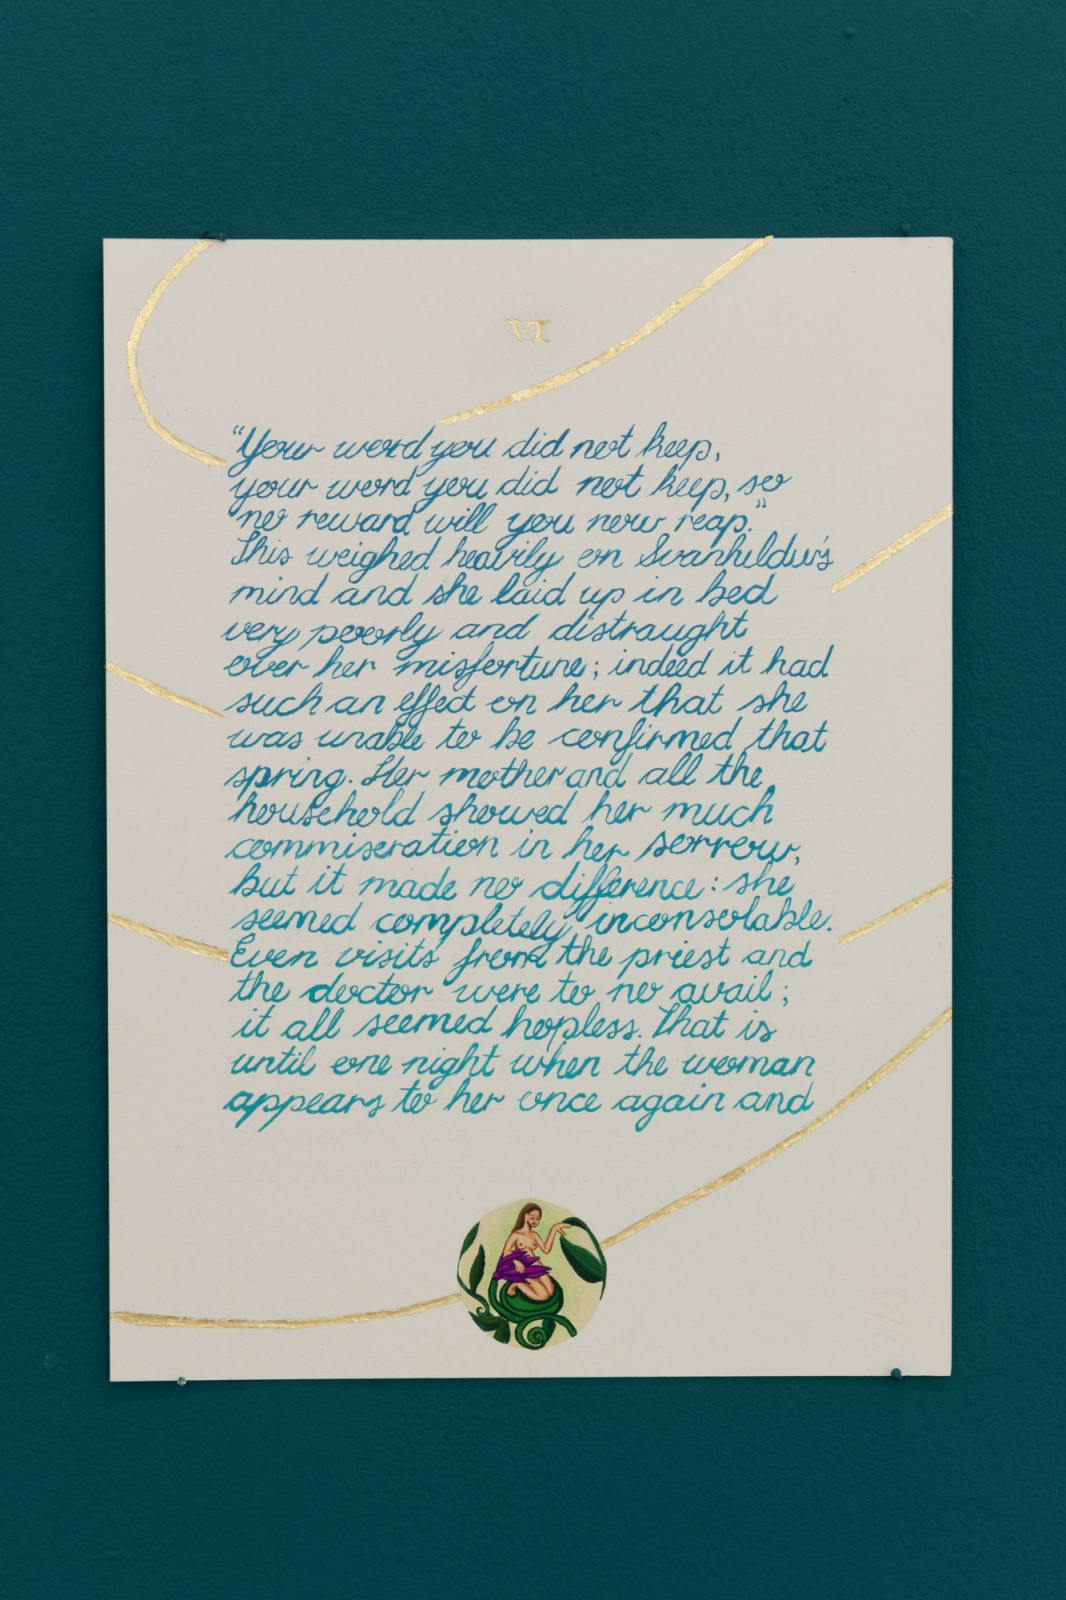 VI
"Your word you did not keep,
your word you did not keep, so
no reward will you now reap."
This weighed heavily on Svanhildur's
mind and she laid up in bed
very poorly and distraught
over her misfortune; indeed it had
such an effect on her that she
was unable to be confirmed that
spring. Her mother and all the
household showed her much
commiseration in her sorrow,
but it made no difference: she
seemed completely inconsolable.
Even visits from the priest and
the doctor were to no avail;
it all seemed hopless. That is
until one night when the woman
appears to her once again and